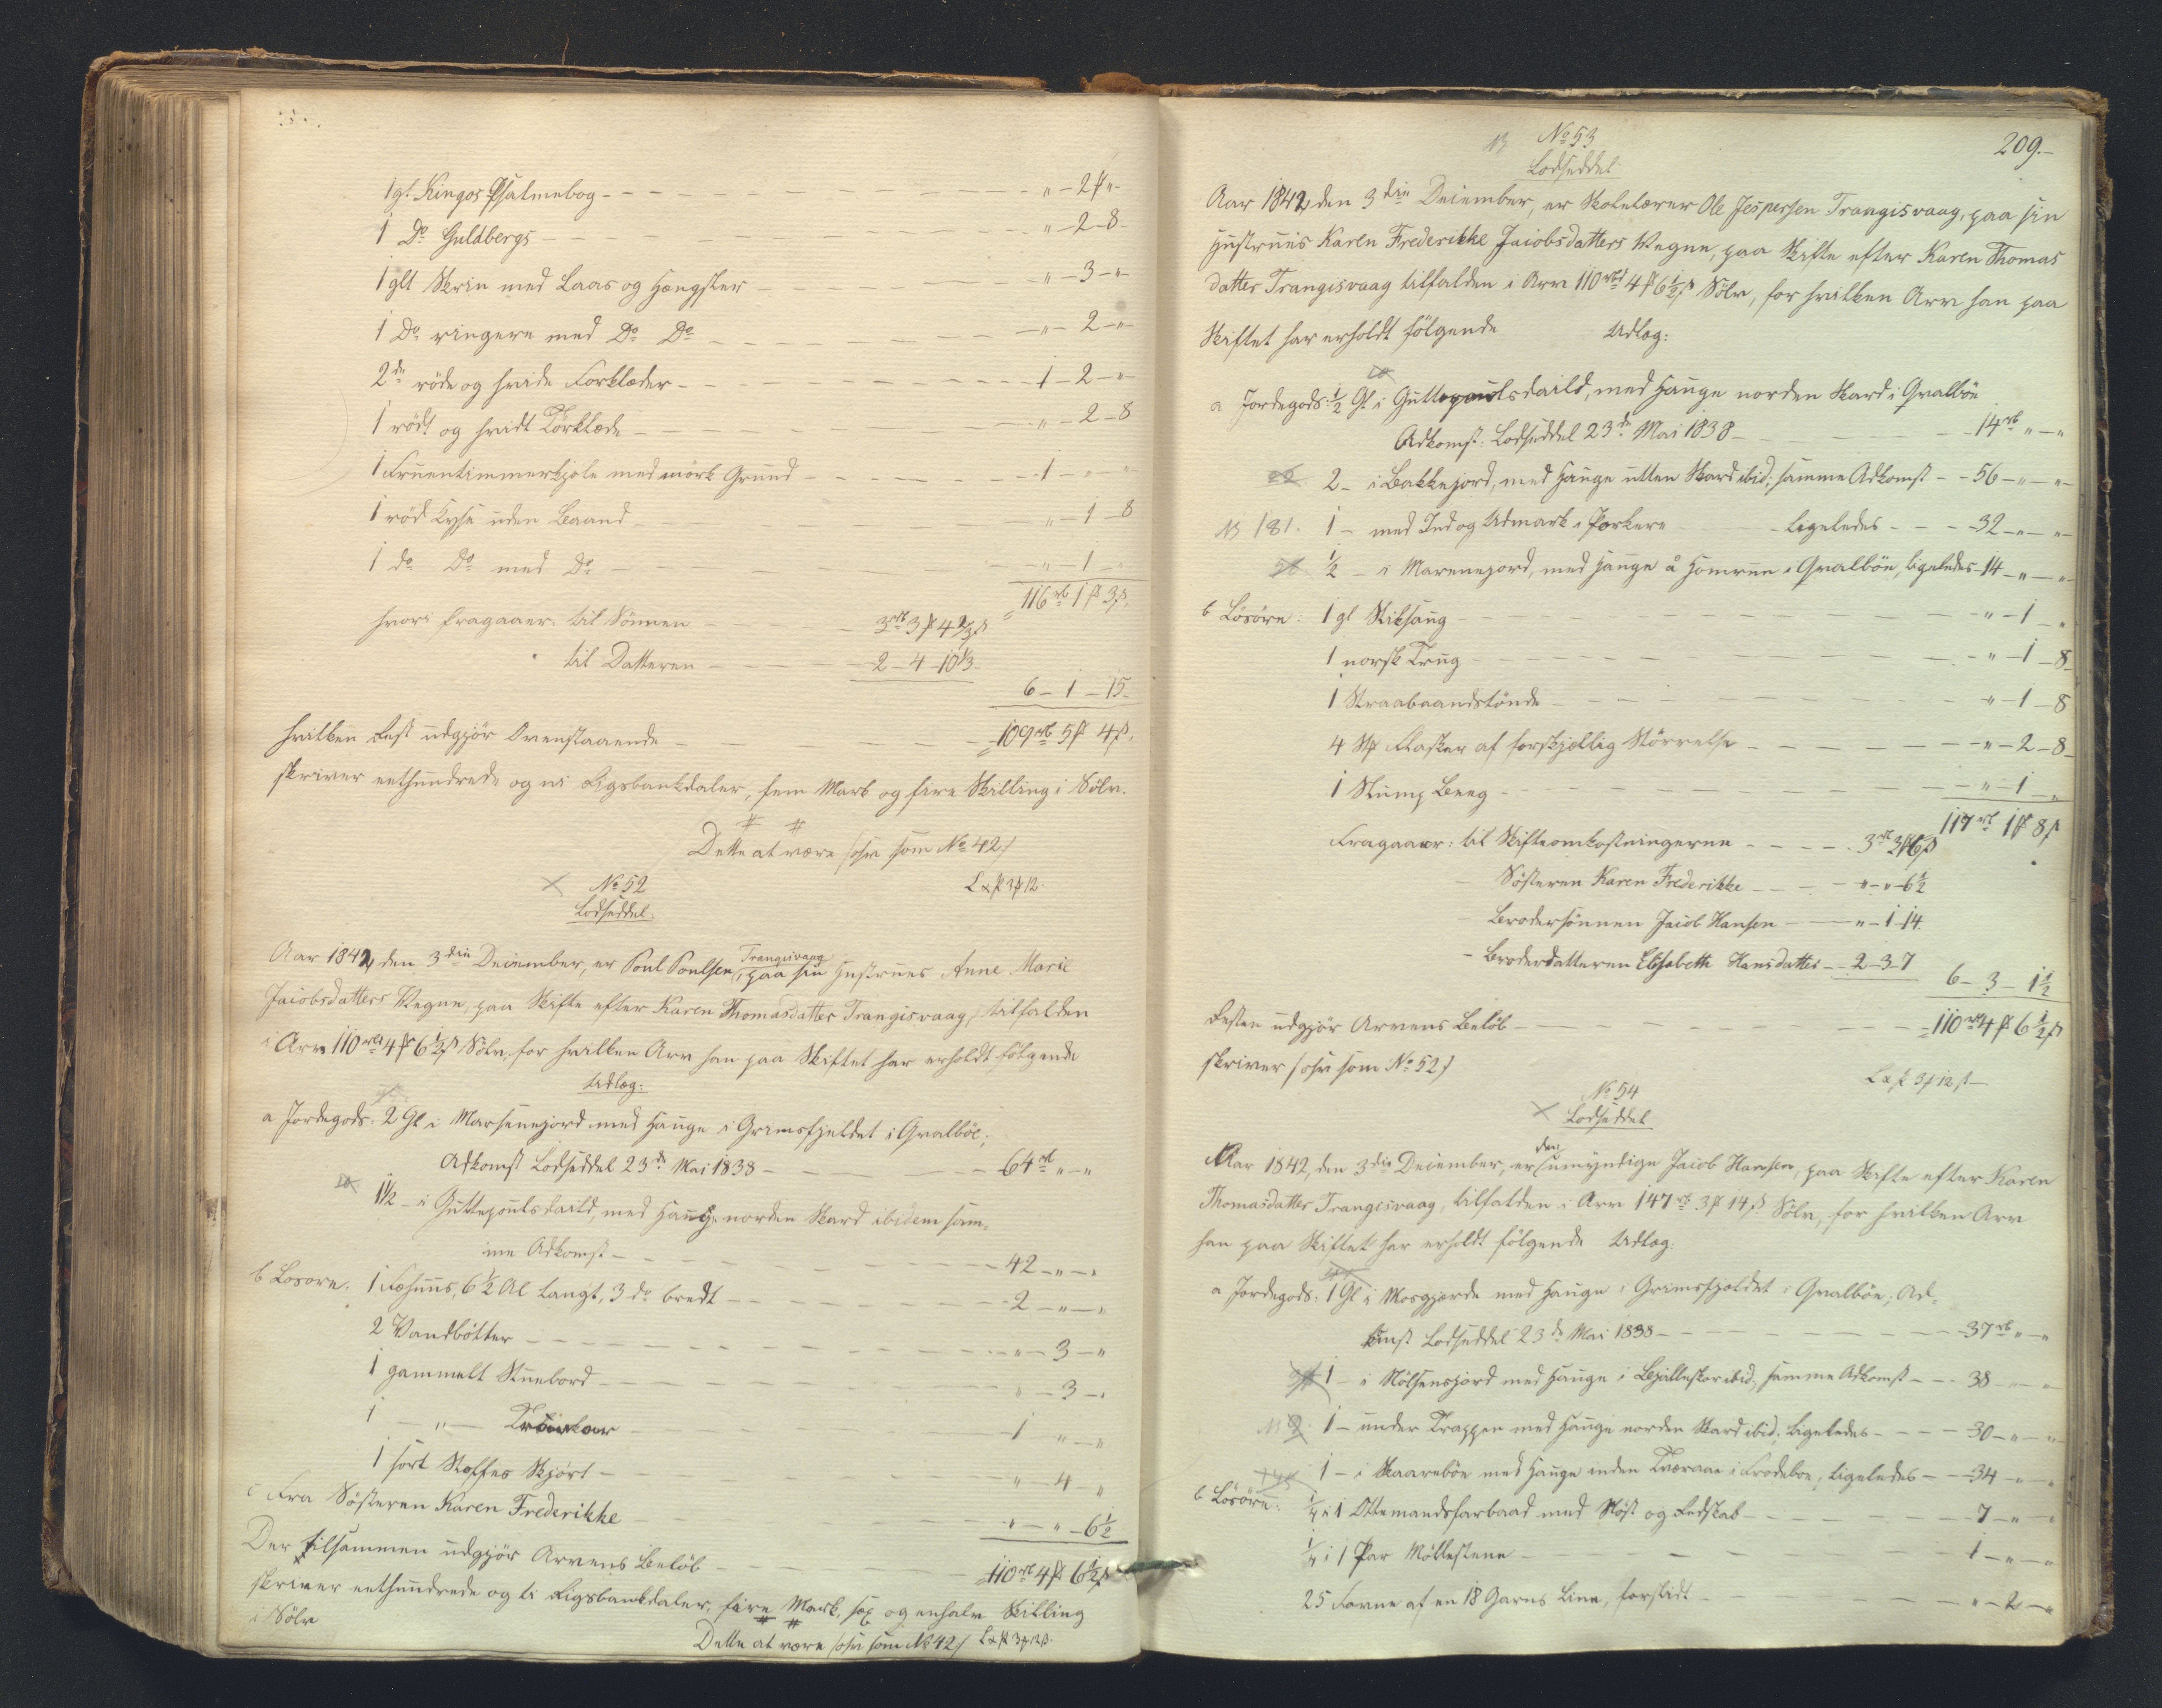 1 gl. Kingos Psalmebog - " - 2 ß " -
1 Do Guldbergs - " - 2 - 8 -
1 glt Skrin med Laas og Hængsler - " - 3 - " -
1 Do ringere med Do Do - " - 2 - " -
2de röde og hvide Forklæder - 1 - 2 - " -
1 rödt og hvidt Törklæde - " - 2 - 8
1 Fruentimmerkjole med mörk Grund - 1 - " - "
1 röd Kyse uden Baand - " - 1 - 8
1 do Do med Do - " - 1 - "
116 rb 1 ß 3 ß.
hvori fragaaer: til Sönnen - 3 rb 3 ß 4 2/3 ß
til Datteren - 2 - 4 - 10 1/3 -
6 - 1 - 15 -
hvilken Rest udgjör Ovenstaaende - 109 rb 5 ß 4 ß.
skriver eethundrede og ni Rigsbankdaler, fem Mark og fire Skilling i Sölv.
Dette at være /:osv som No 42:/
No 52 L & ß 3 ß 12.
Lodseddel.
Aar 1842, den 3die December, er Poul Poulsen, Trangisvaag paa sin Hustrues Anne Marie
Jacobsdatters Vegne, paa Skifte efter Karen Thomasdatter Trangisvaag, tilfalden
i Arv 110 rbd 4 ß 6 1/2 ß Sölv, for hvilken Arv han paa Skiftet har erholdt fölgende
Udlæg:
a Jordegods: 2 Gl i Marsenejord med Hauge i Grimsfjeldet i Qvalböe;
Adkomst Lodseddel 23de Mai 1838 - 64 rb " - "
1 1/2 - i Guttepoulsdaild, med Hauge norden Skard ibidem sam-
me Adkomst - 42 - " - "
b Lösöre. 1 Fæhuus, 6 1/2 Al langt, 3 do bredt - 2 - " - "
2 Vandbötter - " - 3 - "
1 gammelt Stuebord - " - 3 - "
1 - " - - 1 " - "
1 sort Stoffes Skjört - " - 4 - "
c Fra Sösteren Karen Frederikke - " - " - 6 1/2
Der tilsammen udgjör Arvens Belöb - 110 rb 4 ß 6 1/2 ß
skriver eethundrede og ti Rigsbankdaler, fire Mark, sex og enhalv Skilling
i Sölv
Dette at være /:osv som No 42:/ L & ß 3 ß 12 ß.
209.-
No 53
Lodseddel
Aar 1842, den 3die December, er Skolelærer Ole Jespersen Trangisvaag, paa sin
Hustrues Karen Frederikke Jacobsdatters Vegne, paa Skifte efter Karen Thomas
datter Trangisvaag tilfalden i Arv 110 rbd 4 ß 6 1/2 ß Sölv, for hvilken Arv han paa
Skiftet har erholdt fölgende Udlæg:
a Jordegods: 1/2 Gl i Guttepoulsdaild, med Hauge norden Skard i Qvalböe
Adkomst: Lodseddel 23de Mai 1838 - 14 rb " - "
2 - i Bakkejord, med Hauge utten Skard ibid; samme Adkomst - 56 - " - "
181. 1 - med Ind og Udmark i Porkere - Ligeledes - 32 - " - "
1/2 - i Marenejord, med Hauge å Homrum i Qvalböe, ligeledes - 14 - " - "
b Lösöre: 1 gl Skiksaug - " - 1 - "
1 norsk Trug - " - 1 - 8 -
1 Straabaandstönde - " - 1 - 8
4 Stk Flasker af forskjællig Störrelse - " - 2 - 8
1 Stump Beeg - " - 1 - "
117 rb 1 ß 8 ß
Fragaaer: til Skifteomkostningerne - 3 rb 3 ß 6 ß
Sösteren Karen Frederikke - " - " - 6 1/2
Brodersönnen Jacob Hansen - " - 1 - 14.
- Broderdatteren Elisabeth Hansdatter - 2 - 3 - 7
6 - 3 - 1 1/2
Resten udgjör Arvens Belöb - 110 rb 4 ß 6 1/2 ß
skriver /:osv som No 52:/
L & ß 3 ß 12 ß -
No 54
Lodseddel
Aar 1842, den 3die December, er den umyndige Jacob Hansen, paa Skifte efter Karen
Thomasdatter Trangisvaag, tilfalden i Arv 147 rb 3 ß 14 ß Sölv, for hvilken Arv
han paa Skiftet har erholdt fölgende Udlæg:
a Jordegods: 1 Gl i Mosgjærde med Hauge i Grimsfjældet i Qvalböe; Ad-
komst Lodseddel 23de Mai 1838 - 37 rb " - "
1 - i Nölsensjord med Hauge i ibid, samme Adkomst - 38 - " - "
1 - under Trappen med Hauge norden Skard ibid; Ligeledes - 30 - " - "
1 - i Skaareböe med Hauge inden Tværaae i Frodeboe, Ligeledes - 34 - " - "
b Lösöre: 1/4 i 1 Ottemandsfarbaad med Nöst og Redskab - 7 - " - "
1/4 i 1 Par Möllestene - 1 - " - "
25 Favne af en 18 Garns Line, forslidt - " - 2 - "